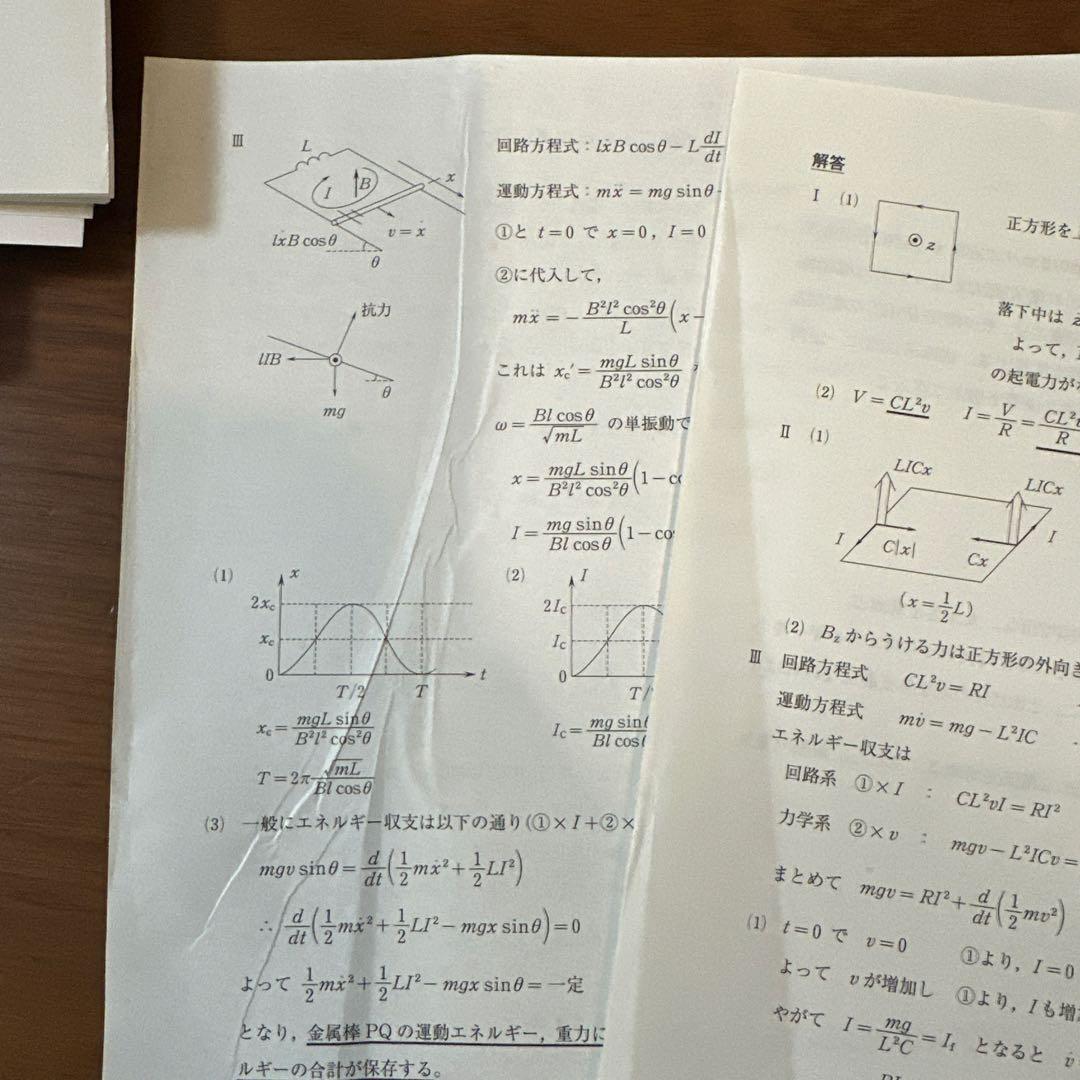 III
L
I
B
x
v = ẋ
lẋB cosθ
θ
抗力
lIB
θ
mg
回路方程式：lẋB cosθ − L dI/dt
運動方程式：mẍ = mg sinθ
①と t=0 で x=0, I=0
②に代入して，
mẍ = − B²l² cos²θ/L (x −
これは x_c′ = mgL sinθ/B²l² cos²θ
ω = Bl cosθ/√mL の単振動で
x = mgL sinθ/B²l² cos²θ (1 − co
I = mg sinθ/Bl cosθ (1 − co
(1)
x
2x_c
x_c
0
T/2
T
t
x_c = mgL sinθ/B²l² cos²θ
T = 2π √mL/Bl cosθ
(2)
I
2I_c
I_c
0
T/
I_c = mg sin/Bl cos
(3) 一般にエネルギー収支は以下の通り(①×I+②×
mgv sinθ = d/dt (1/2 mẋ² + 1/2 LI²)
∴ d/dt (1/2 mẋ² + 1/2 LI² − mgx sinθ) = 0
よって 1/2 mẋ² + 1/2 LI² − mgx sinθ = 一定
となり，金属棒PQの運動エネルギー，重力に
ルギーの合計が保存する。
解答
I (1)
z
正方形を
落下中は
よって，
の起電力が
(2) V = CL²v I = V/R = CL²v/R
II (1)
LICx
LICx
I
C|x|
Cx
I
(x = 1/2 L)
(2) B_z からうける力は正方形の外向き
III 回路方程式 CL²v = RI
運動方程式 mv̇ = mg − L²IC
エネルギー収支は
回路系 ①×I ： CL²vI = RI²
力学系 ②×v ： mgv − L²ICv =
まとめて mgv = RI² + d/dt (1/2 mv²)
(1) t=0 で v=0 ①より，I=0
よって v が増加し ①より，I も増
やがて I = mg/L²C = I_f となると v̇